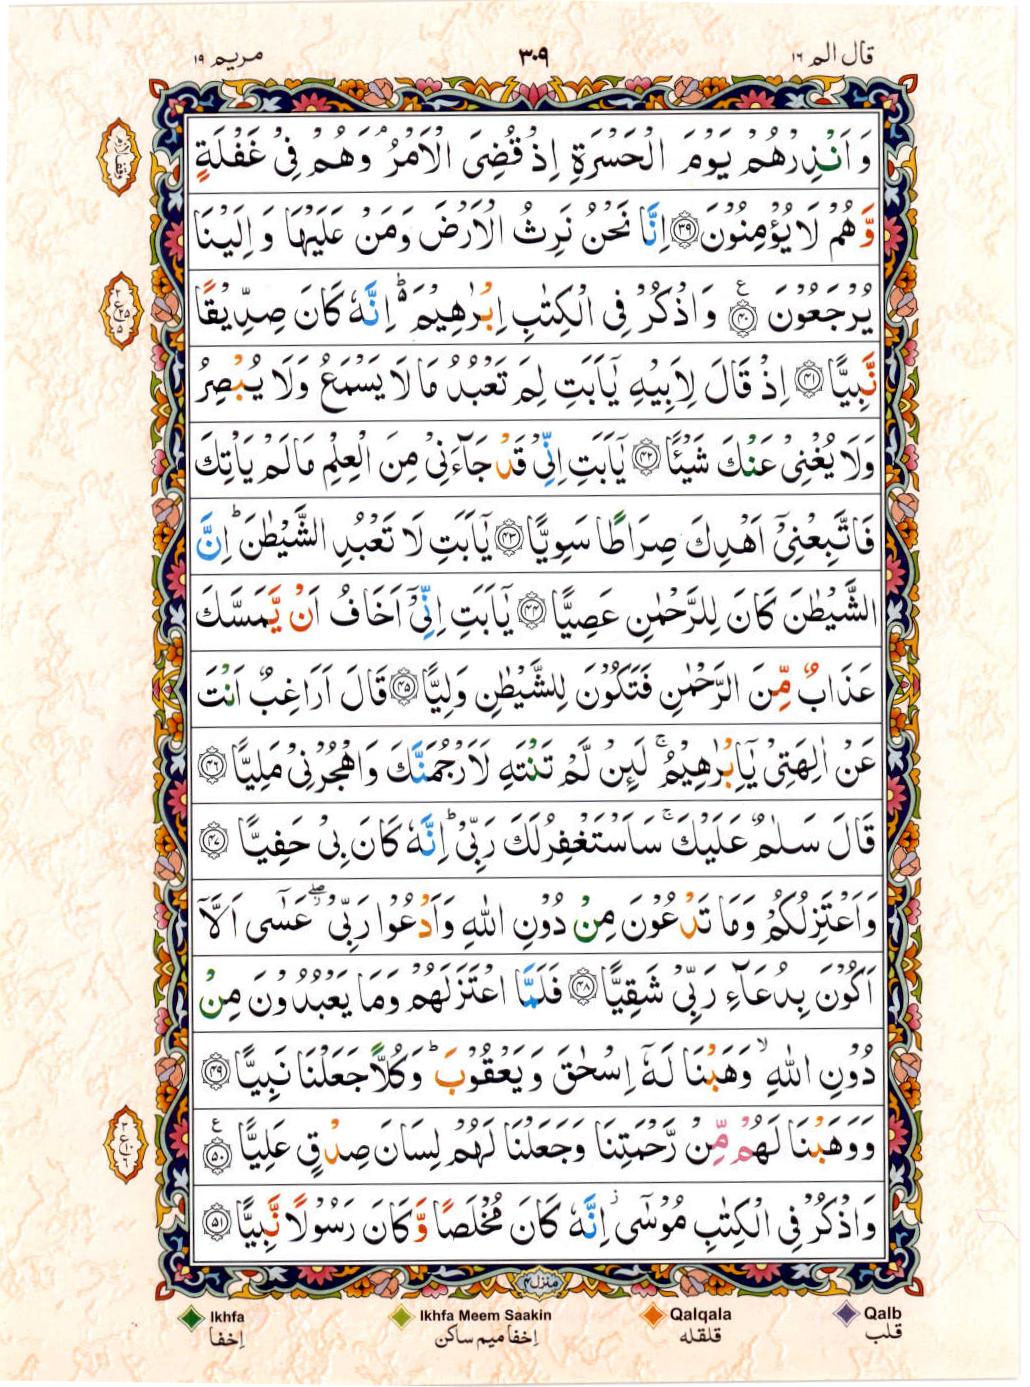 قال الم ١٦
٣٠٩
مريم ١٩
وَاَنْذِرْهُمْ يَوْمَ الْحَسْرَةِ اِذْ قُضِیَ الْاَمْرُ ۘ وَهُمْ فِیْ غَفْلَةٍ
وَّهُمْ لَا يُؤْمِنُوْنَ ﴿٣٩﴾ اِنَّا نَحْنُ نَرِثُ الْاَرْضَ وَمَنْ عَلَيْهَا وَ اِلَيْنَا
يُرْجَعُوْنَ ﴿٤٠﴾ وَاذْكُرْ فِی الْكِتٰبِ اِبْرٰهِيْمَ ؕ۬ اِنَّهٗ كَانَ صِدِّيْقًا
نَّبِيًّا ﴿٤١﴾ اِذْ قَالَ لِاَبِيْهِ يٰۤاَبَتِ لِمَ تَعْبُدُ مَا لَا يَسْمَعُ وَلَا يُبْصِرُ
وَلَا يُغْنِیْ عَنْكَ شَيْـًٔا ﴿٤٢﴾ يٰۤاَبَتِ اِنِّیْ قَدْ جَآءَنِیْ مِنَ الْعِلْمِ مَا لَمْ يَاْتِكَ
فَاتَّبِعْنِیْۤ اَهْدِكَ صِرَاطًا سَوِيًّا ﴿٤٣﴾ يٰۤاَبَتِ لَا تَعْبُدِ الشَّيْطٰنَ ؕ اِنَّ
الشَّيْطٰنَ كَانَ لِلرَّحْمٰنِ عَصِيًّا ﴿٤٤﴾ يٰۤاَبَتِ اِنِّیْۤ اَخَافُ اَنْ يَّمَسَّكَ
عَذَابٌ مِّنَ الرَّحْمٰنِ فَتَكُوْنَ لِلشَّيْطٰنِ وَلِيًّا ﴿٤٥﴾ قَالَ اَرَاغِبٌ اَنْتَ
عَنْ اٰلِهَتِیْ يٰۤاِبْرٰهِيْمُ ۚ لَئِنْ لَّمْ تَنْتَهِ لَاَرْجُمَنَّكَ وَاهْجُرْنِیْ مَلِيًّا ﴿٤٦﴾
قَالَ سَلٰمٌ عَلَيْكَ ۚ سَاَسْتَغْفِرُ لَكَ رَبِّیْ ؕ اِنَّهٗ كَانَ بِیْ حَفِيًّا ﴿٤٧﴾
وَاَعْتَزِلُكُمْ وَمَا تَدْعُوْنَ مِنْ دُوْنِ اللّٰهِ وَاَدْعُوْا رَبِّیْ ۖؗ عَسٰۤی اَلَّاۤ
اَكُوْنَ بِدُعَآءِ رَبِّیْ شَقِيًّا ﴿٤٨﴾ فَلَمَّا اعْتَزَلَهُمْ وَمَا يَعْبُدُوْنَ مِنْ
دُوْنِ اللّٰهِ ۙ وَهَبْنَا لَهٗۤ اِسْحٰقَ وَيَعْقُوْبَ ؕ وَكُلًّا جَعَلْنَا نَبِيًّا ﴿٤٩﴾
وَوَهَبْنَا لَهُمْ مِّنْ رَّحْمَتِنَا وَجَعَلْنَا لَهُمْ لِسَانَ صِدْقٍ عَلِيًّا ﴿٥٠﴾
وَاذْكُرْ فِی الْكِتٰبِ مُوْسٰۤی ؗ اِنَّهٗ كَانَ مُخْلَصًا وَّكَانَ رَسُوْلًا نَّبِيًّا ﴿٥١﴾
منزل ٤
Ikhfa
Ikhfa Meem Saakin
Qalqala
Qalb
اِخفا
اِخفا ميم ساكن
قلقله
قلب